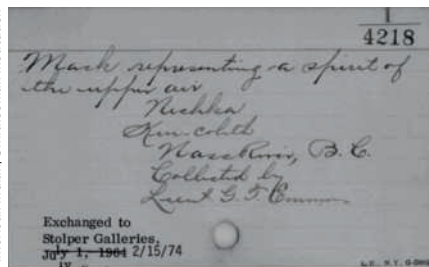 1
4218
Mask representing a spirit of
the upper air
Nishka
Kin-colith
Nass River, B.C.
Collected by
Lieut G. T. Emmons
Exchanged to
Stolper Galleries,
July 1, 1964 2/15/74